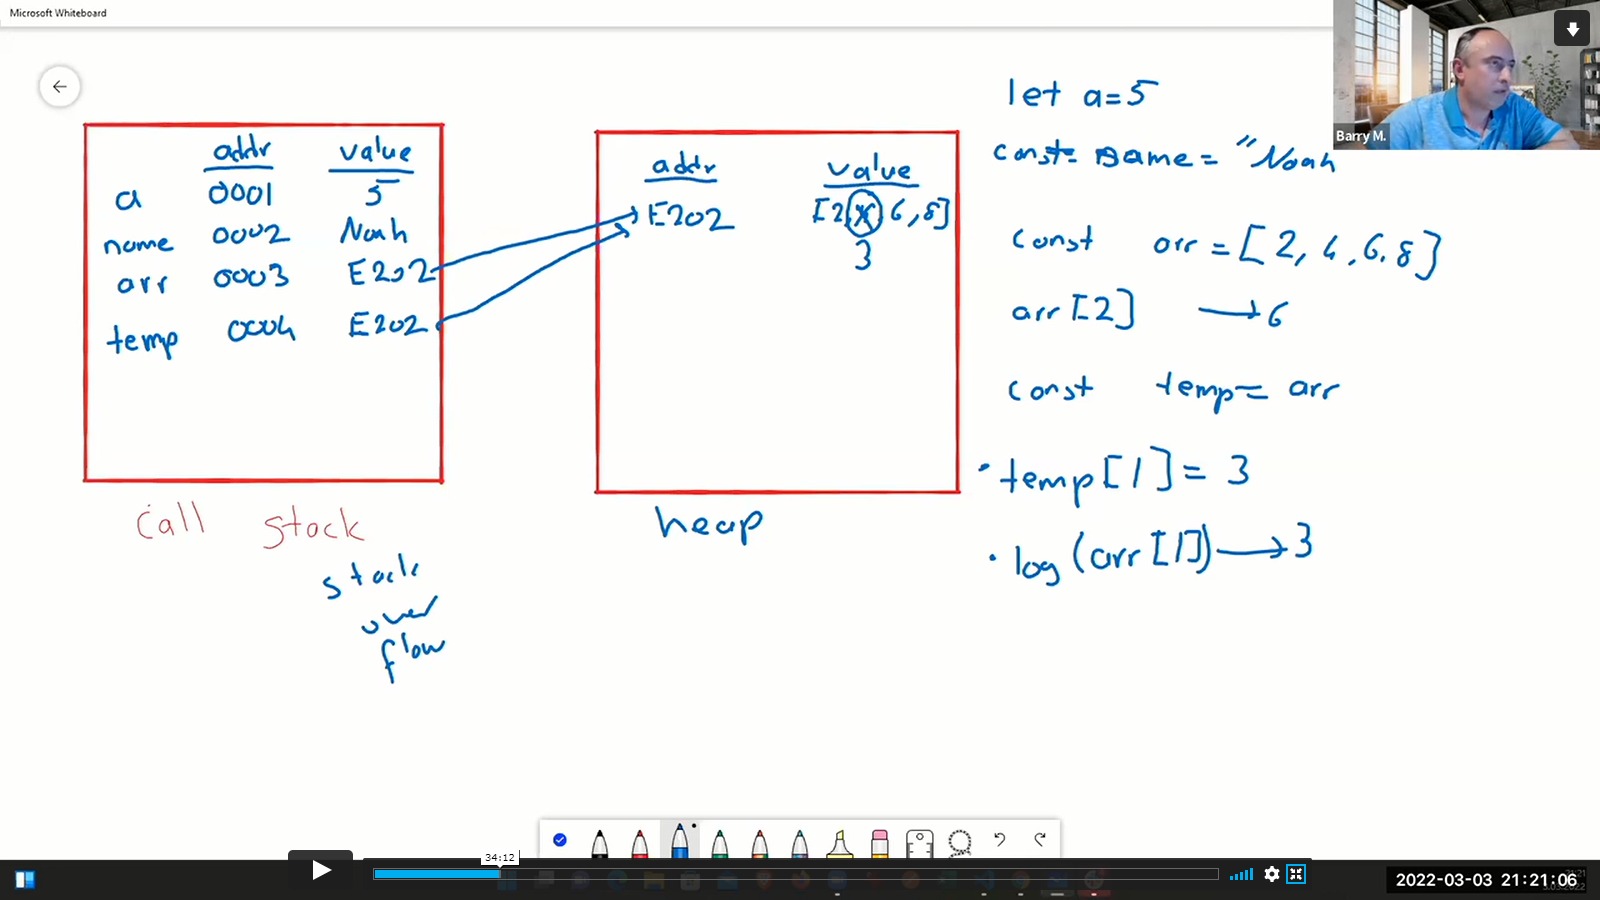 Microsoft Whiteboard
Barry M.
addr value
a 0001 5
name 0002 Noah
arr 0003 E202
temp 0004 E202
call stack
stack
over
flow
addr value
E202 [2, 6, 8]
3
heap
let a=5
const name = "Noah
const arr = [2, 4, 6, 8]
arr[2] → 6
const temp = arr
• temp[1] = 3
• log(arr[1]) → 3
34:12
2022-03-03 21:21:06